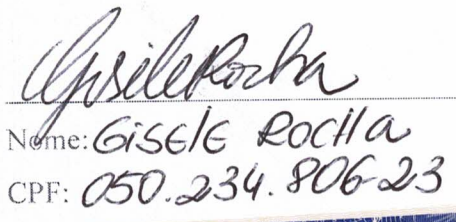 Gisele Rocha
Nome: GISELE ROCHA
CPF: 050.234.806-23